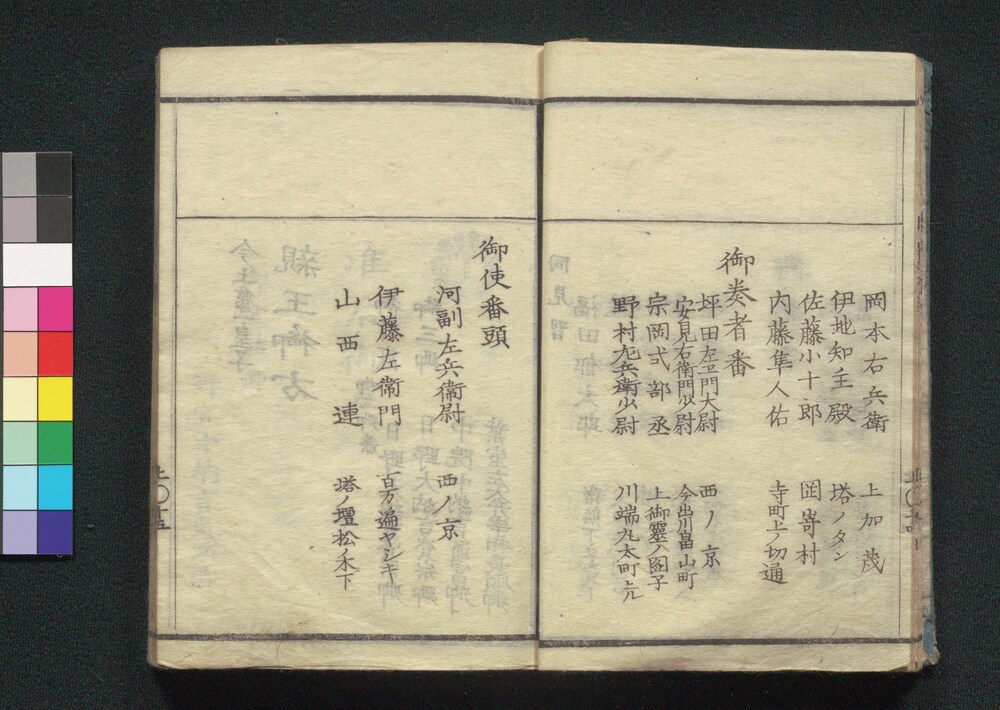 岡本右兵衛 上加茂
伊地知主殿 塔ノタン
佐藤小十郎 岡嵜村
内藤隼人佑 寺町上ノ切通
御奏者番
坪田左ヱ門大尉 西ノ京
安見右衛門少尉 今出川畠山町
宗岡式部丞 上御霊ノ図子
野村左兵衛少尉 川端丸太町上ル
御使番頭
河副左兵衞尉 西ノ京
伊藤左衛門 百万遍ヤシキ
山西連 塔ノ壇松木下